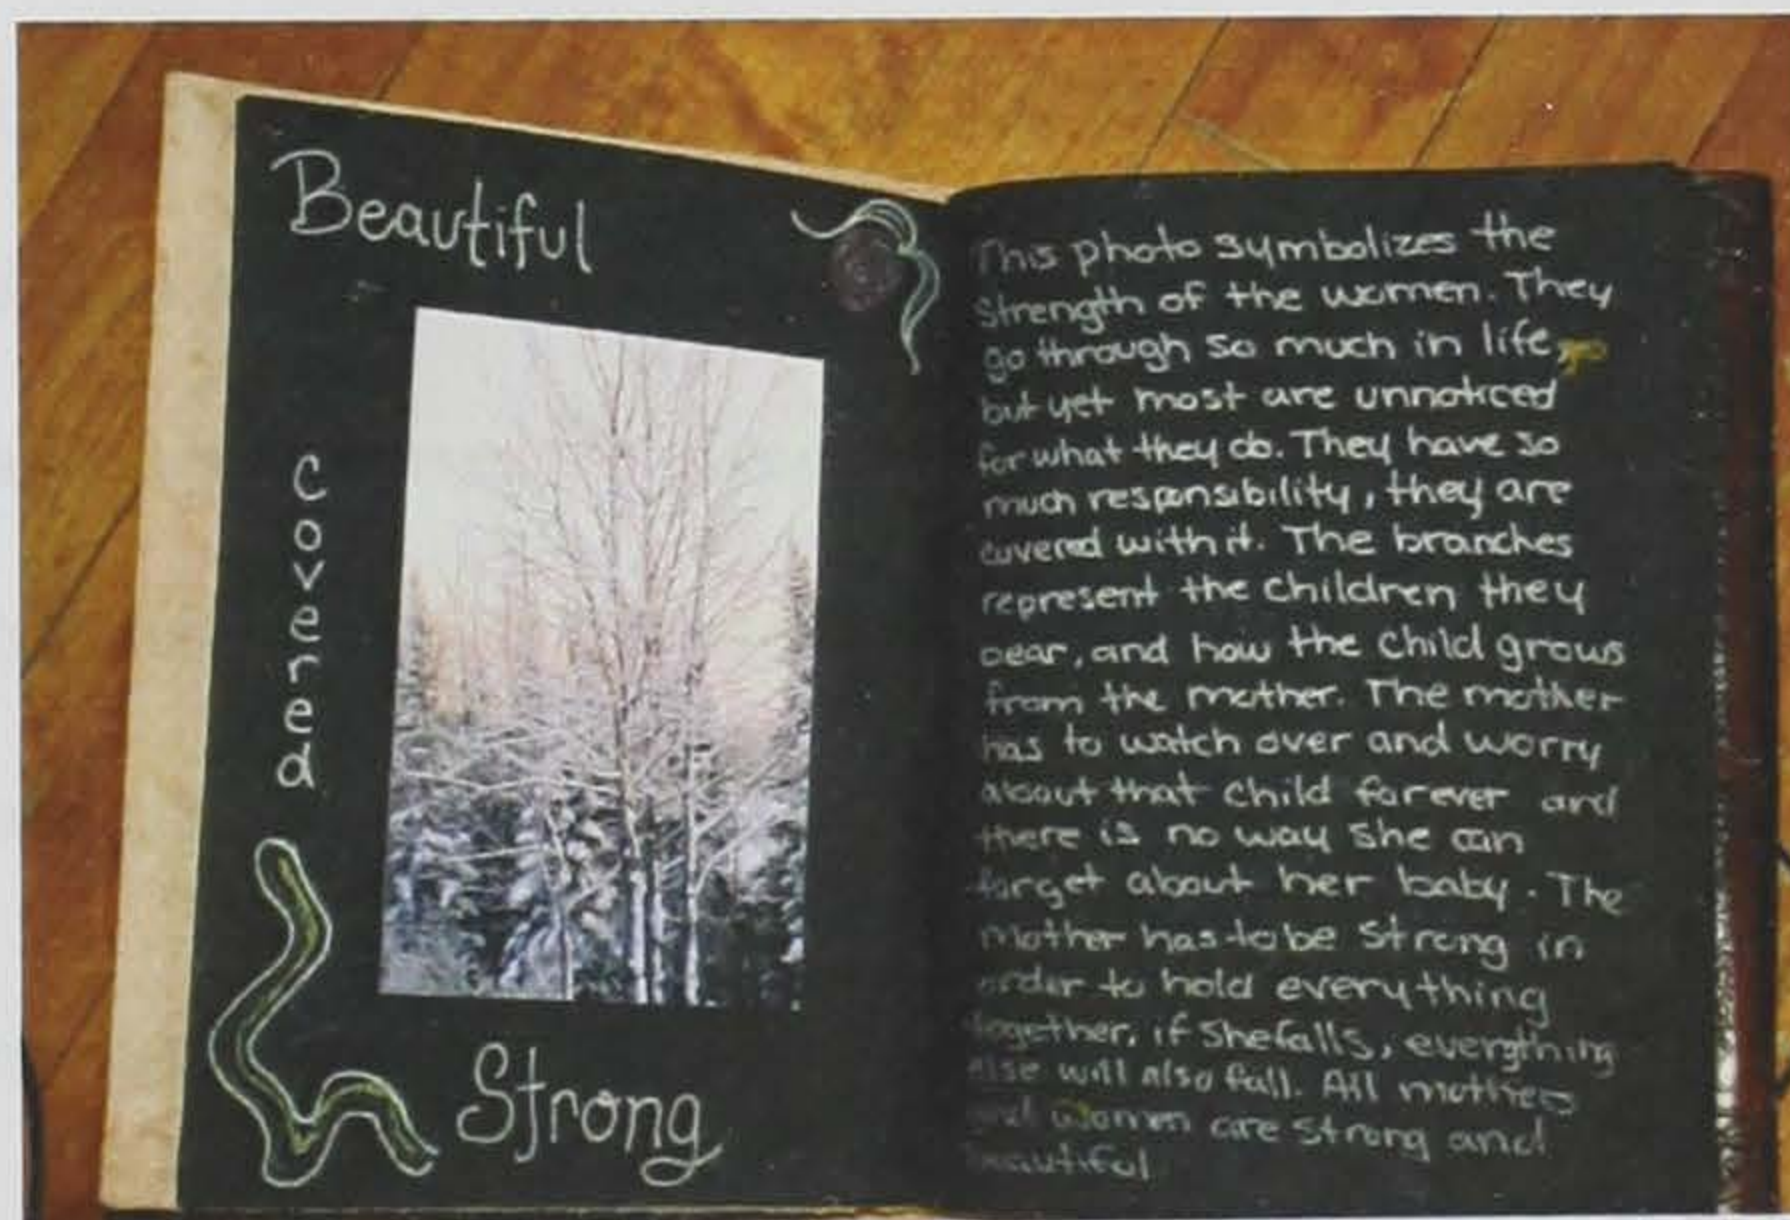 Beautiful
Covered
Strong
This photo symbolizes the
strength of the women. They
go through so much in life,
but yet most are unnoticed
for what they do. They have so
much responsibility, they are
covered with it. The branches
represent the children they
bear, and how the child grows
from the mother. The mother
has to watch over and worry
about that child forever and
there is no way she can
forget about her baby. The
mother has to be strong in
order to hold everything
together, if she falls, everything
else will also fall. All mothers
and women are strong and
beautiful